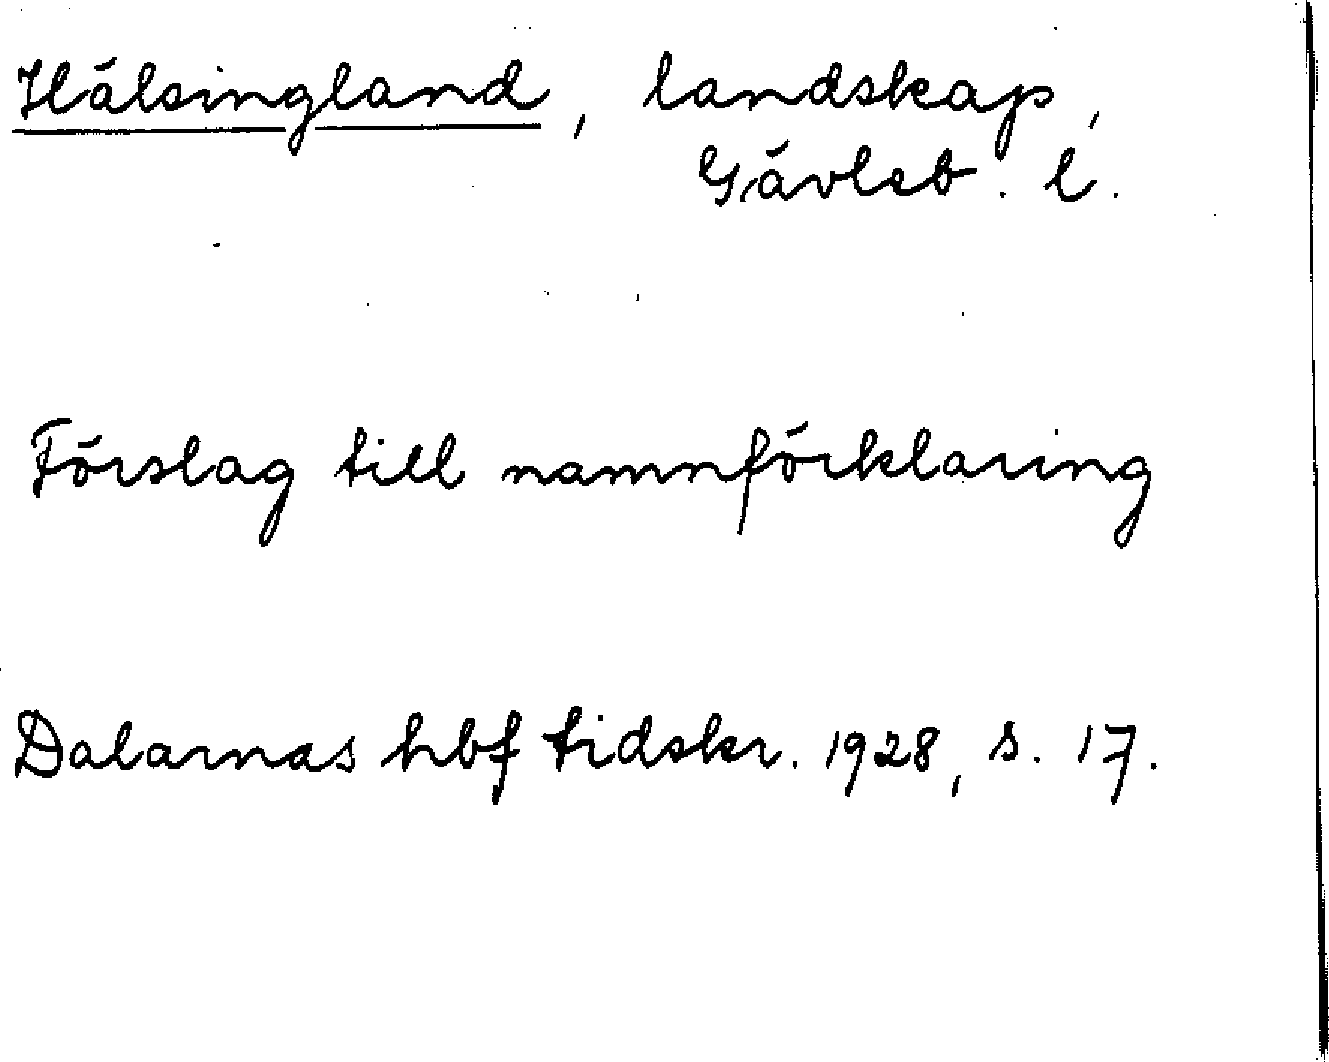 Hälsingland, landskap,
Gävleb. l.
Förslag till namnförklaring
Dalarnas hbf tidskr. 1928, s. 17.